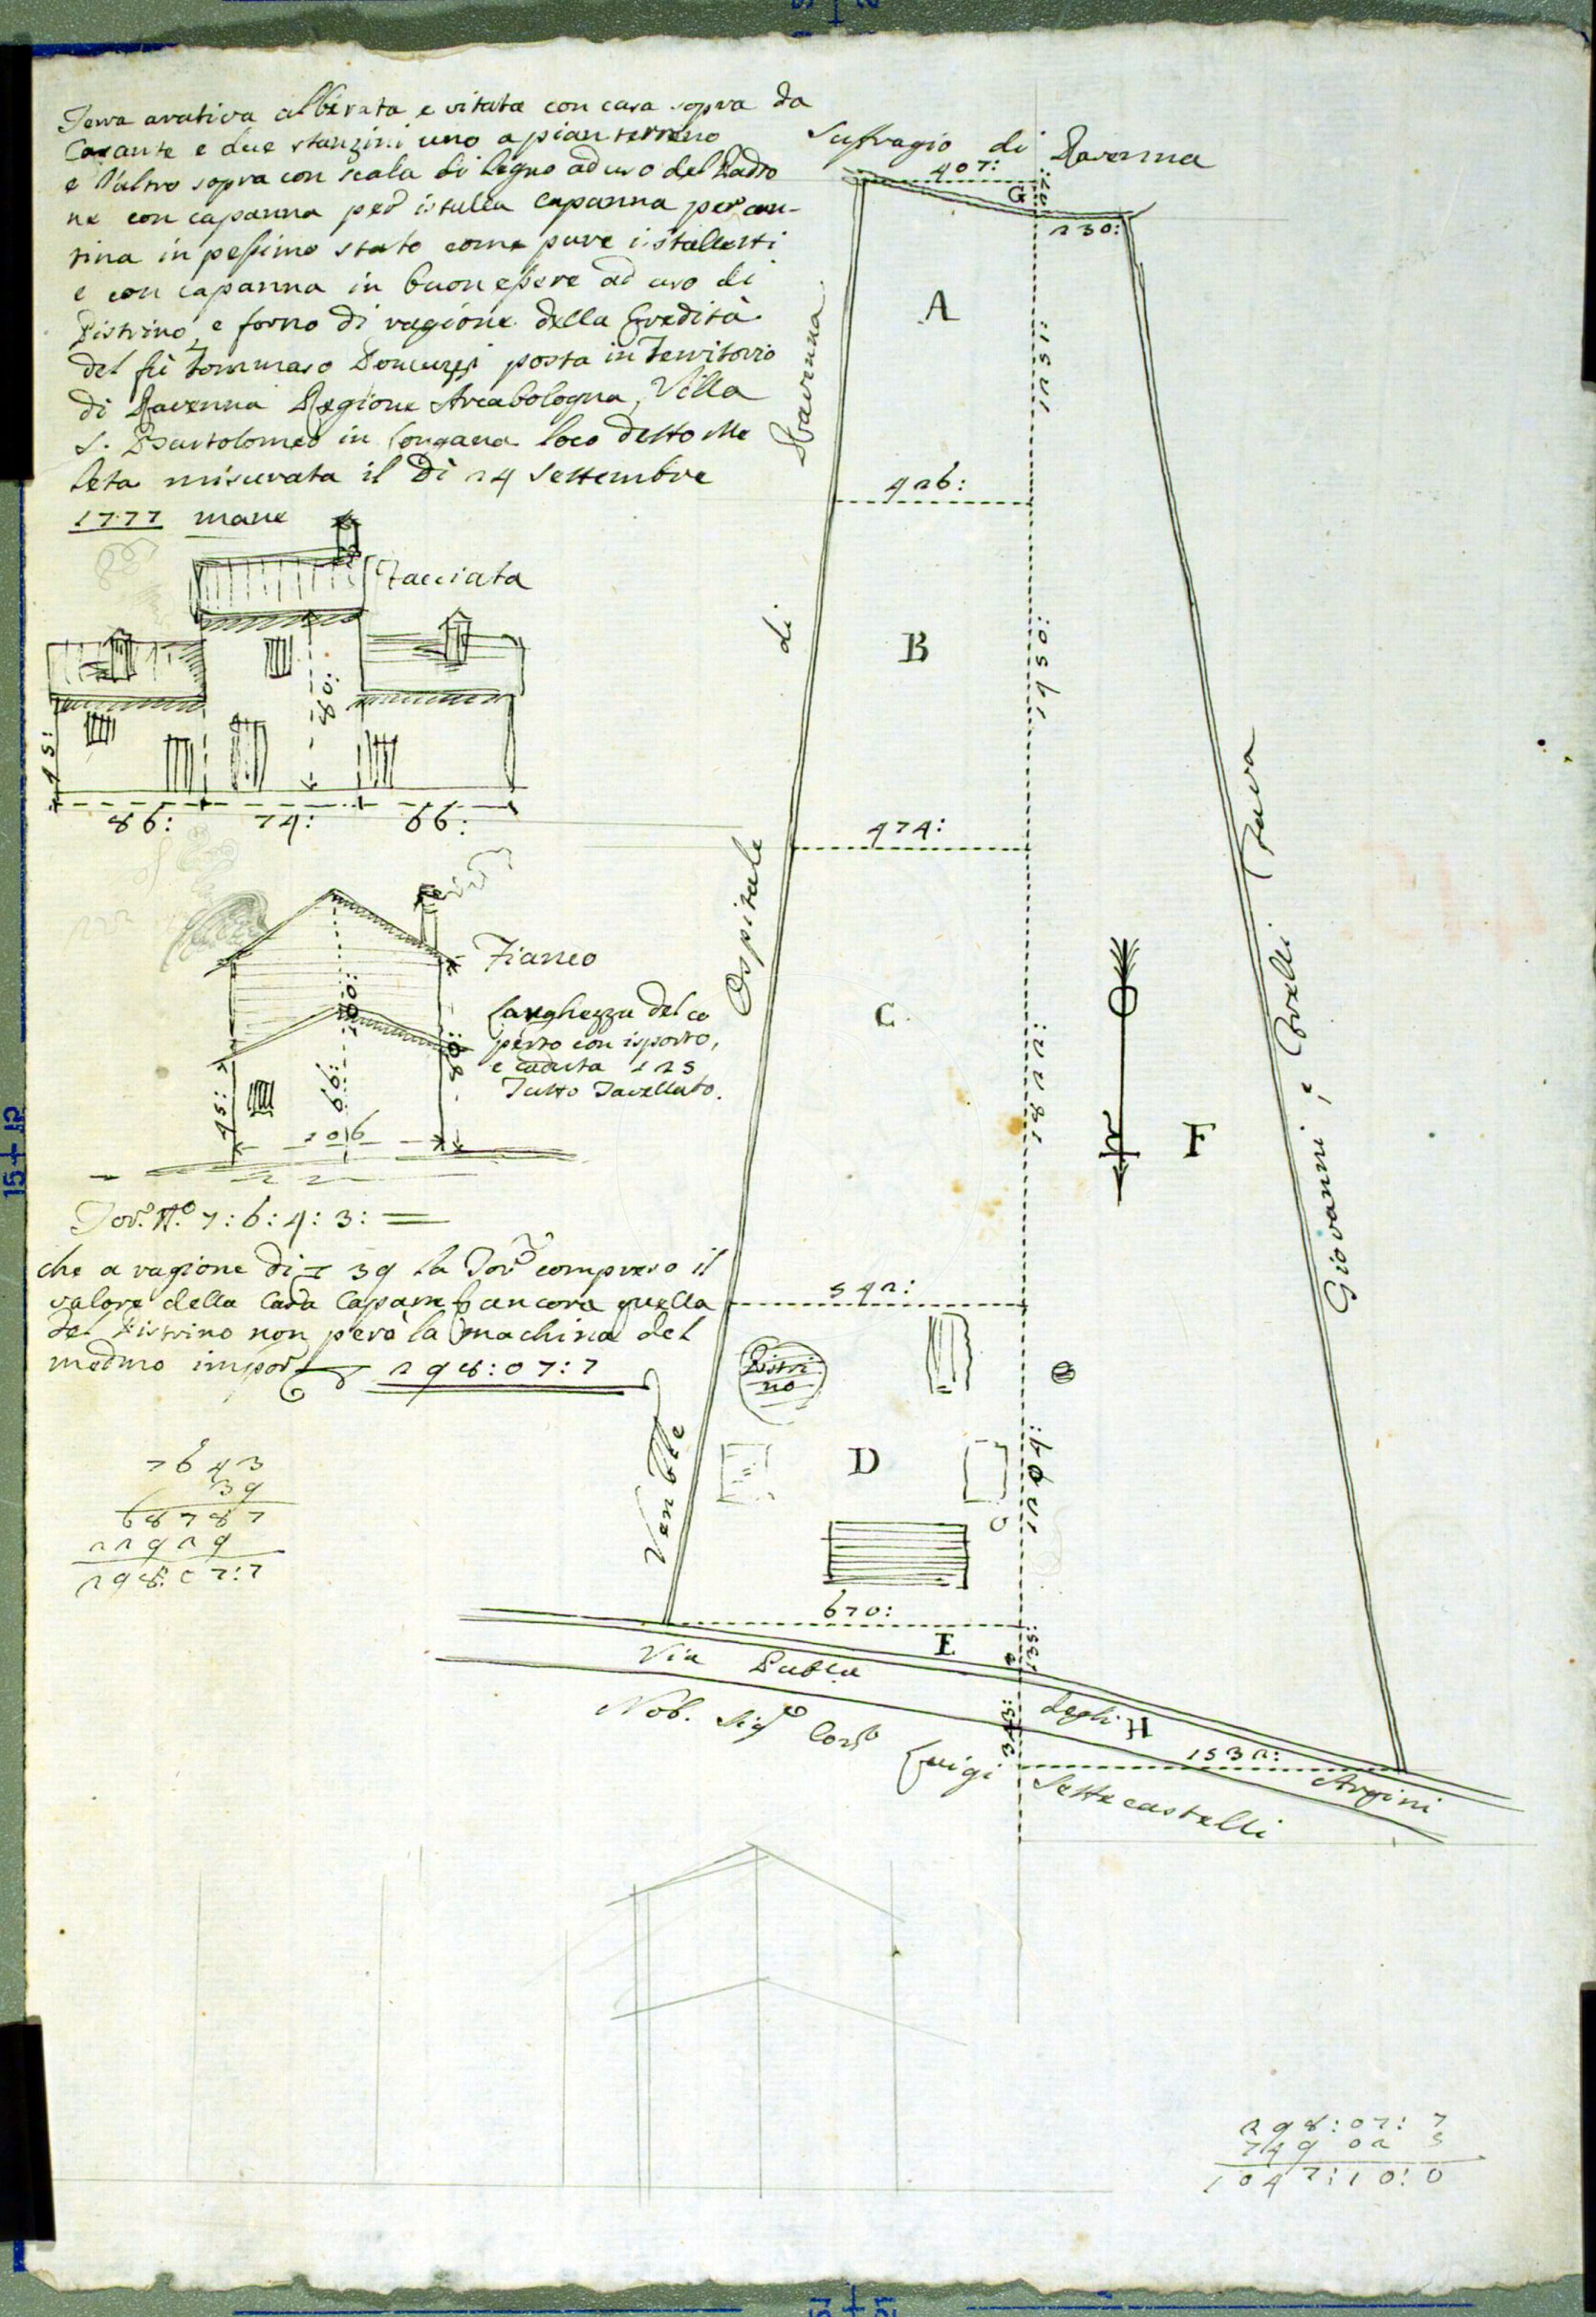 Terra arativa alberata e vitata con casa sopra da
Casante e due stanzini uno a pian terreno
e l'altro sopra con scala di legno ad uso del Padro
ne con capanna per istalla capanna per can-
tina in pessimo stato come pure i stalletti
e con capanna in buon essere ad uso di
Pistrino, e forno di ragione della Eredità
del fù Tommaso posta in Territorio
di Ravenna Regione Areabologna, Villa
S. Bartolomeo in Longana loco detto Me
leta misurata il Dì 24 Settembre
1777 mane
Facciata
80:
45:
86: 74: 66:
Fianco
Larghezza del co
perto con isporto,
e caduta 125
Tutto Tavellato.
100:
80:
66:
45:
106
Tor.e N.o 7:6:4:3:
che a ragione di 39 la Tor.a compreso il
valore della Casa Capan.e ancora quella
del Pistrino non però la machina del
med.mo impor. 298:07:7
7643
39
68787
22929
298:07:7
Suffragio di Ravenna
407:
G
57:
230:
A
1251:
426:
B
1450:
474:
C
1822:
542:
Pistri
no
D
1204:
670:
E
135:
Ven.ble Ospitale di Ravenna
F
Giovanni, e Fava
Via Pub.ca
degli Argini
H
343:
1532:
Nob. Sig.e Con.e Luigi Settecastelli
298:07:7
749 02 5
1047:10:0
15
15